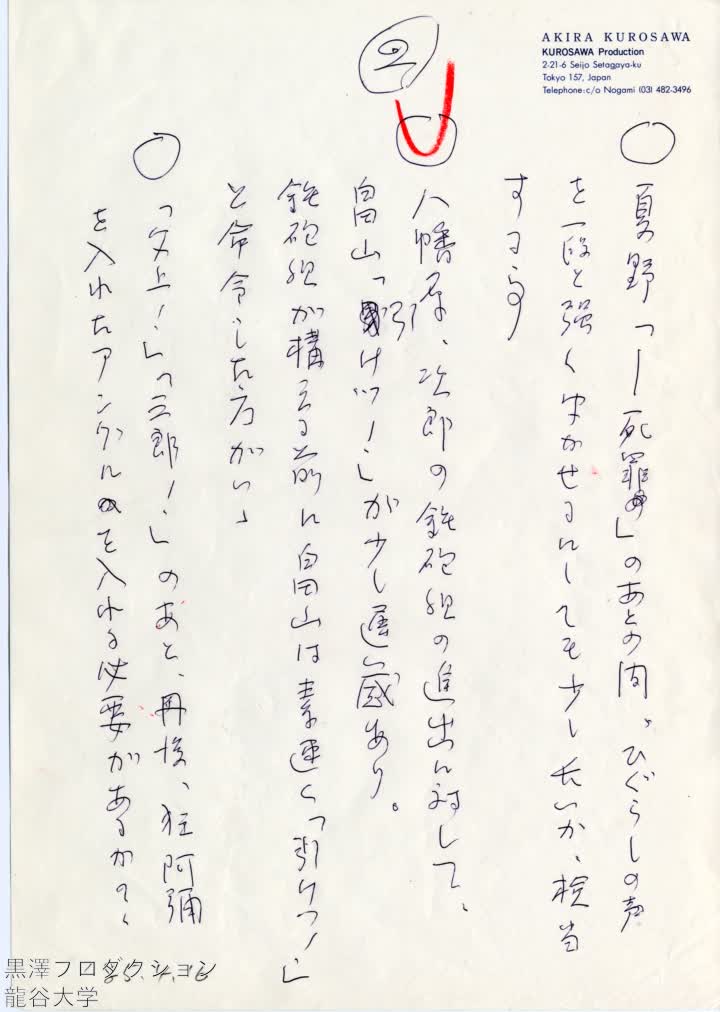 AKIRA KUROSAWA
KUROSAWA Production
2-21-6 Seijo Setagaya-ku
Tokyo 157, Japan
Telephone: c/o Nogami (03) 482-3496
②
○ 夏野「―死罪」のあとの間。ひぐらしの声
を一段と強くきかせるにしても少し長いか、検当
する事
○ 八幡原、次郎の鉄砲組の進出に対して、
畠山「引けッ!」が少し遅い感あり。
鉄砲組が構える前に畠山は素速く「引けっ!」
と命令した方がいゝ
○ 「父上!」「三郎!」のあと、再度、狂阿彌
を入れたアングルを入れる必要があるかも、
黒澤プロダクション
龍谷大学